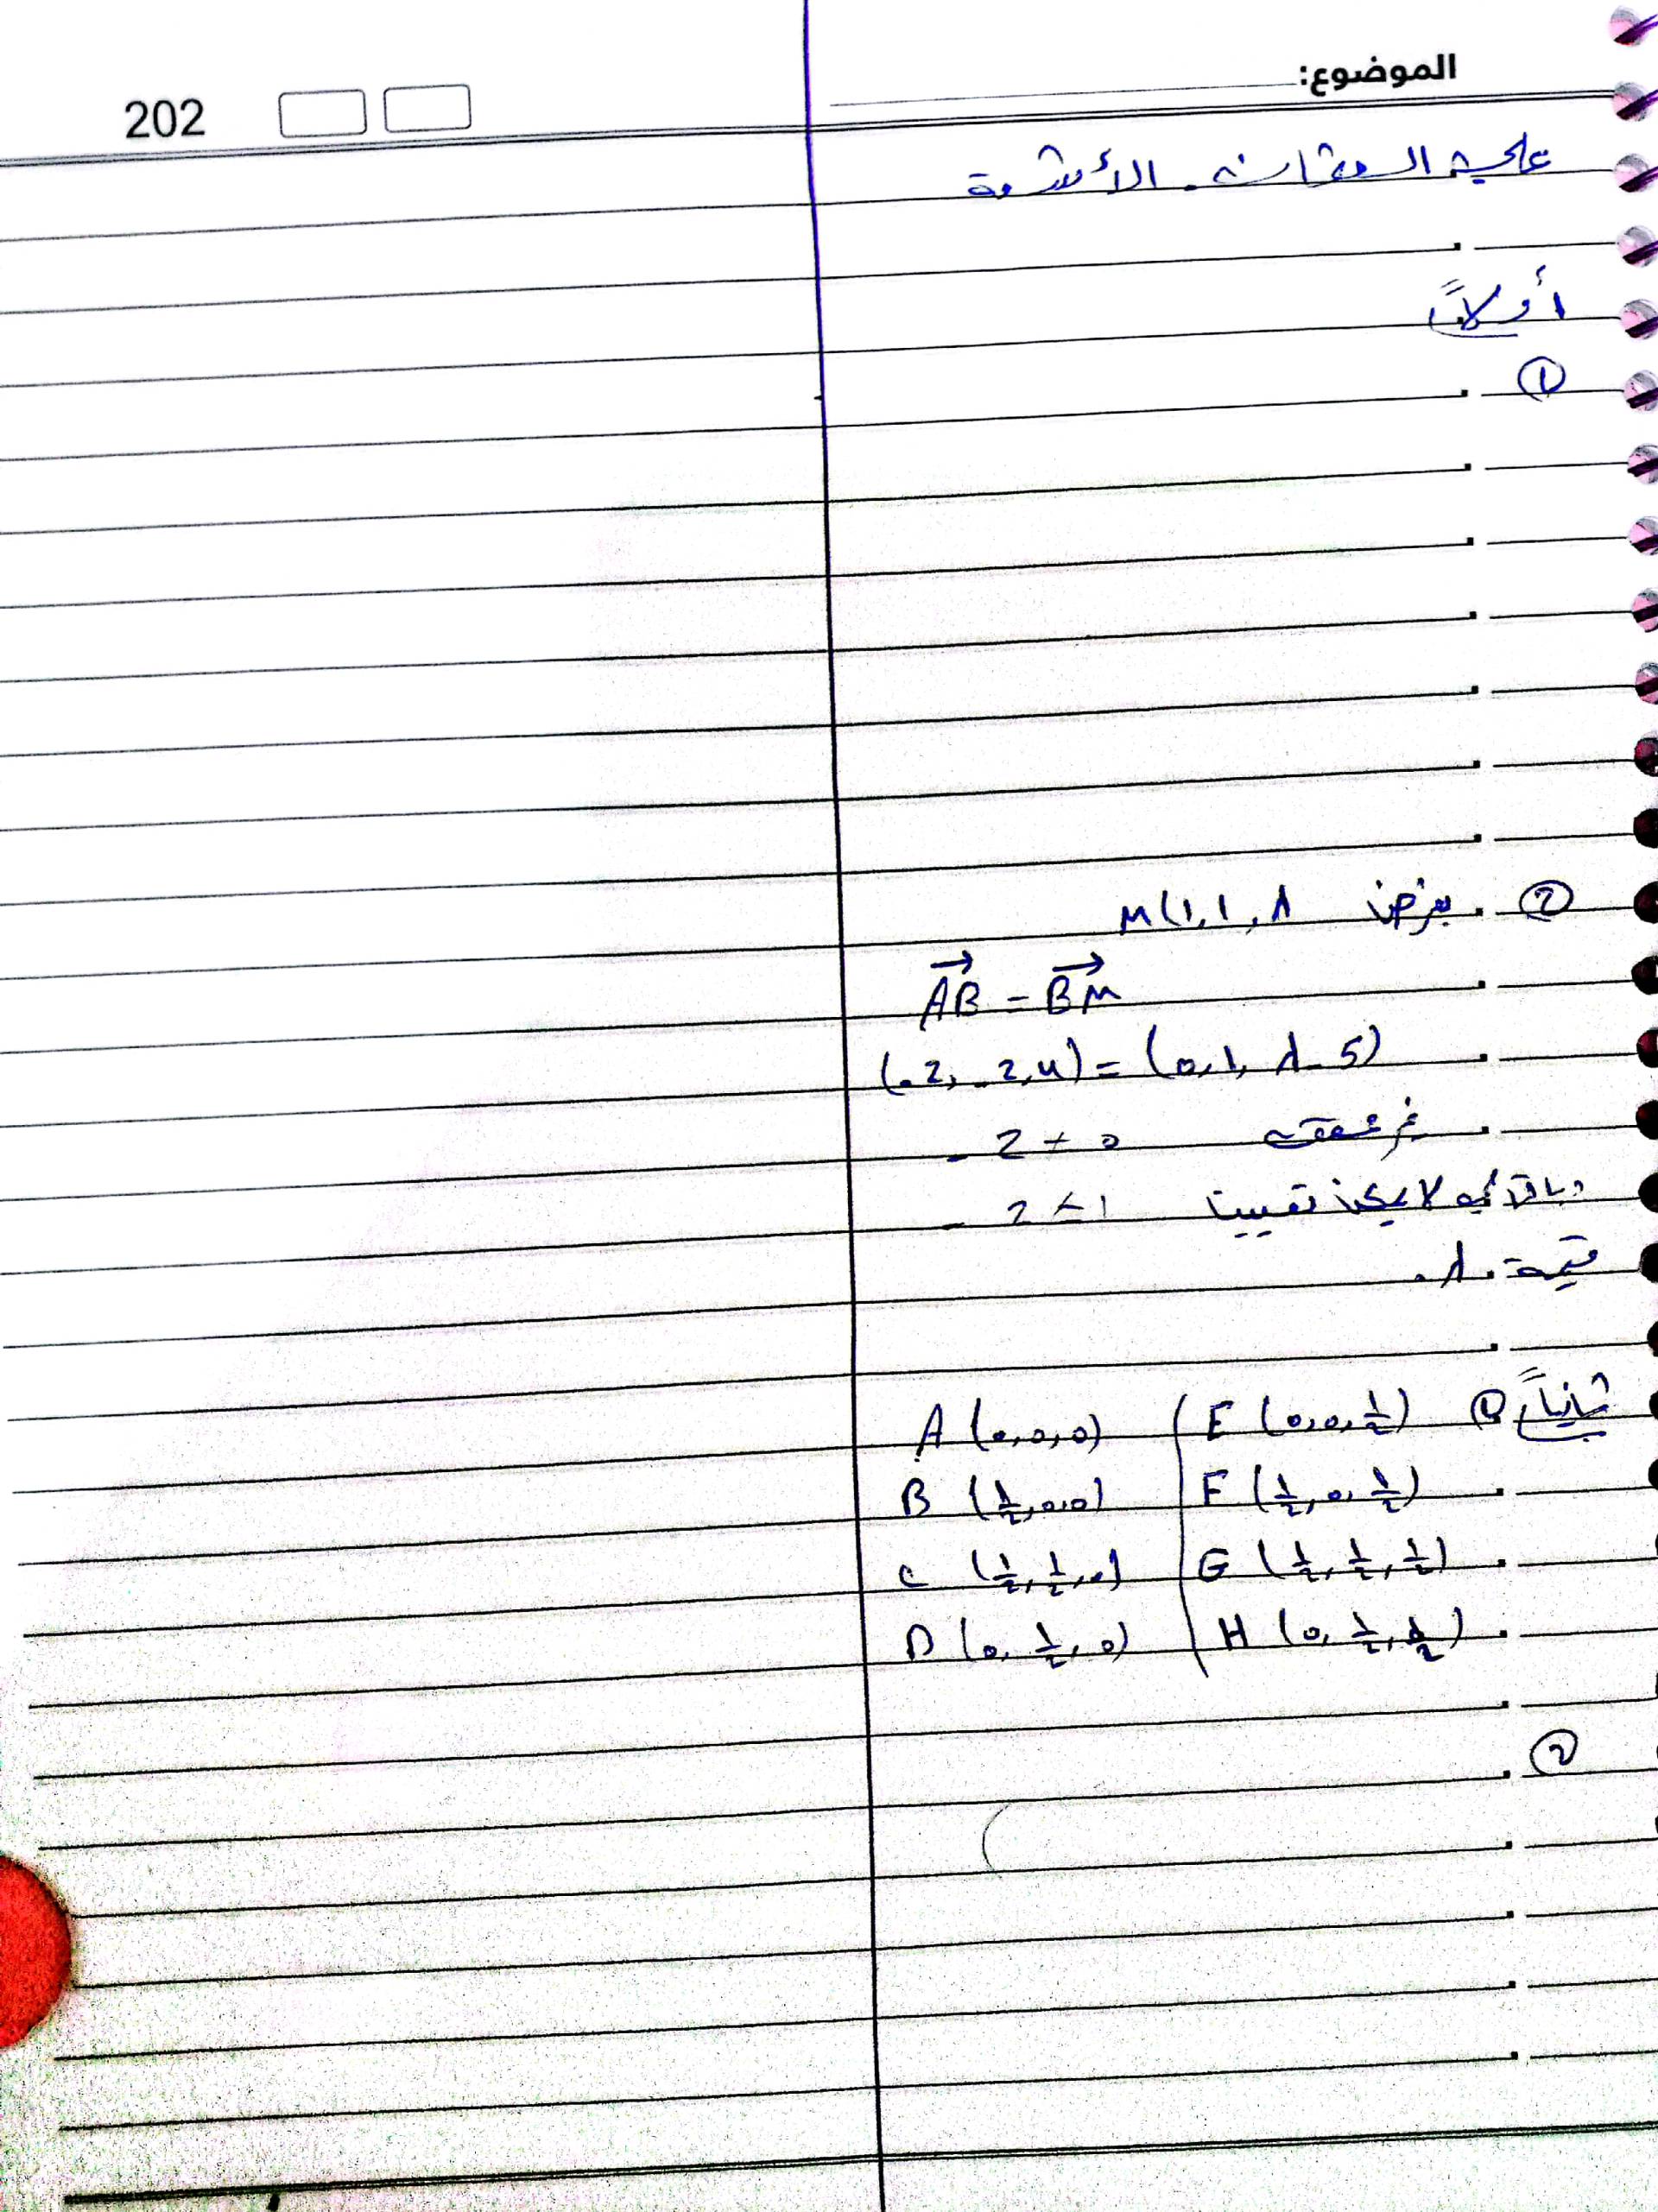 الموضوع:
202
علي السقان. الأشعة
أولاً
①
② بفرض M(1,1,λ
AB = BM
(-2, -2, 4) = (0, 1, λ - 5)
-2 ≠ 0 غير محققة
-2 ≠ 1 وبالتالي لا يمكن تعيين
قيمة λ.
ثانياً ① A (0,0,0) | E (0,0,1/2)
B (1/2,0,0) | F (1/2,0,1/2)
C (1/2,1/2,0) | G (1/2,1/2,1/2)
D (0,1/2,0) | H (0,1/2,1/2)
②